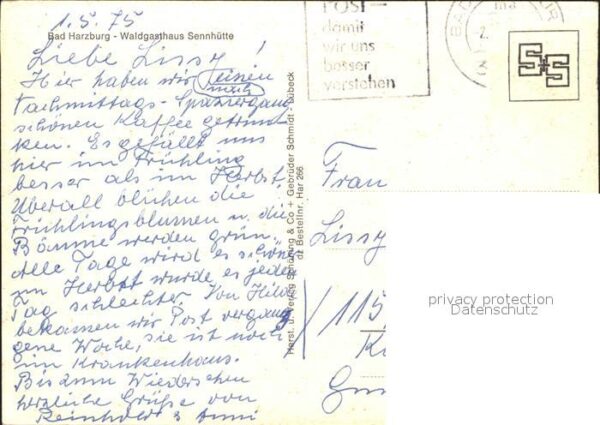 1.5.75
Bad Harzburg - Waldgasthaus Sennhütte
Liebe Lissy!
Hier haben wir einen
nach
Nachmittags-Spaziergang
schönen Kaffee getrun-
ken. Es gefällt uns
hier im Frühling
besser als im Herbst.
Überall blühen die
Frühlingsblumen u. die
Bäume werden grün.
Alle Tage wird es schöner
im Herbst wurde es jeden
Tag schlechter. Von Hilde
bekamen wir Post vergan-
gene Woche, sie ist noch
im Krankenhaus.
Bis zum Wiedersehen
herzliche Grüße von
Reinhold &
Herst. u. Verlag Schöning & Co + Gebrüder Schmidt · Lübeck
Bestellnr. Har 266
POST-
damit
wir uns
besser
verstehen
BAD
S+S
Frau
Lissy
115
privacy protection
Datenschutz